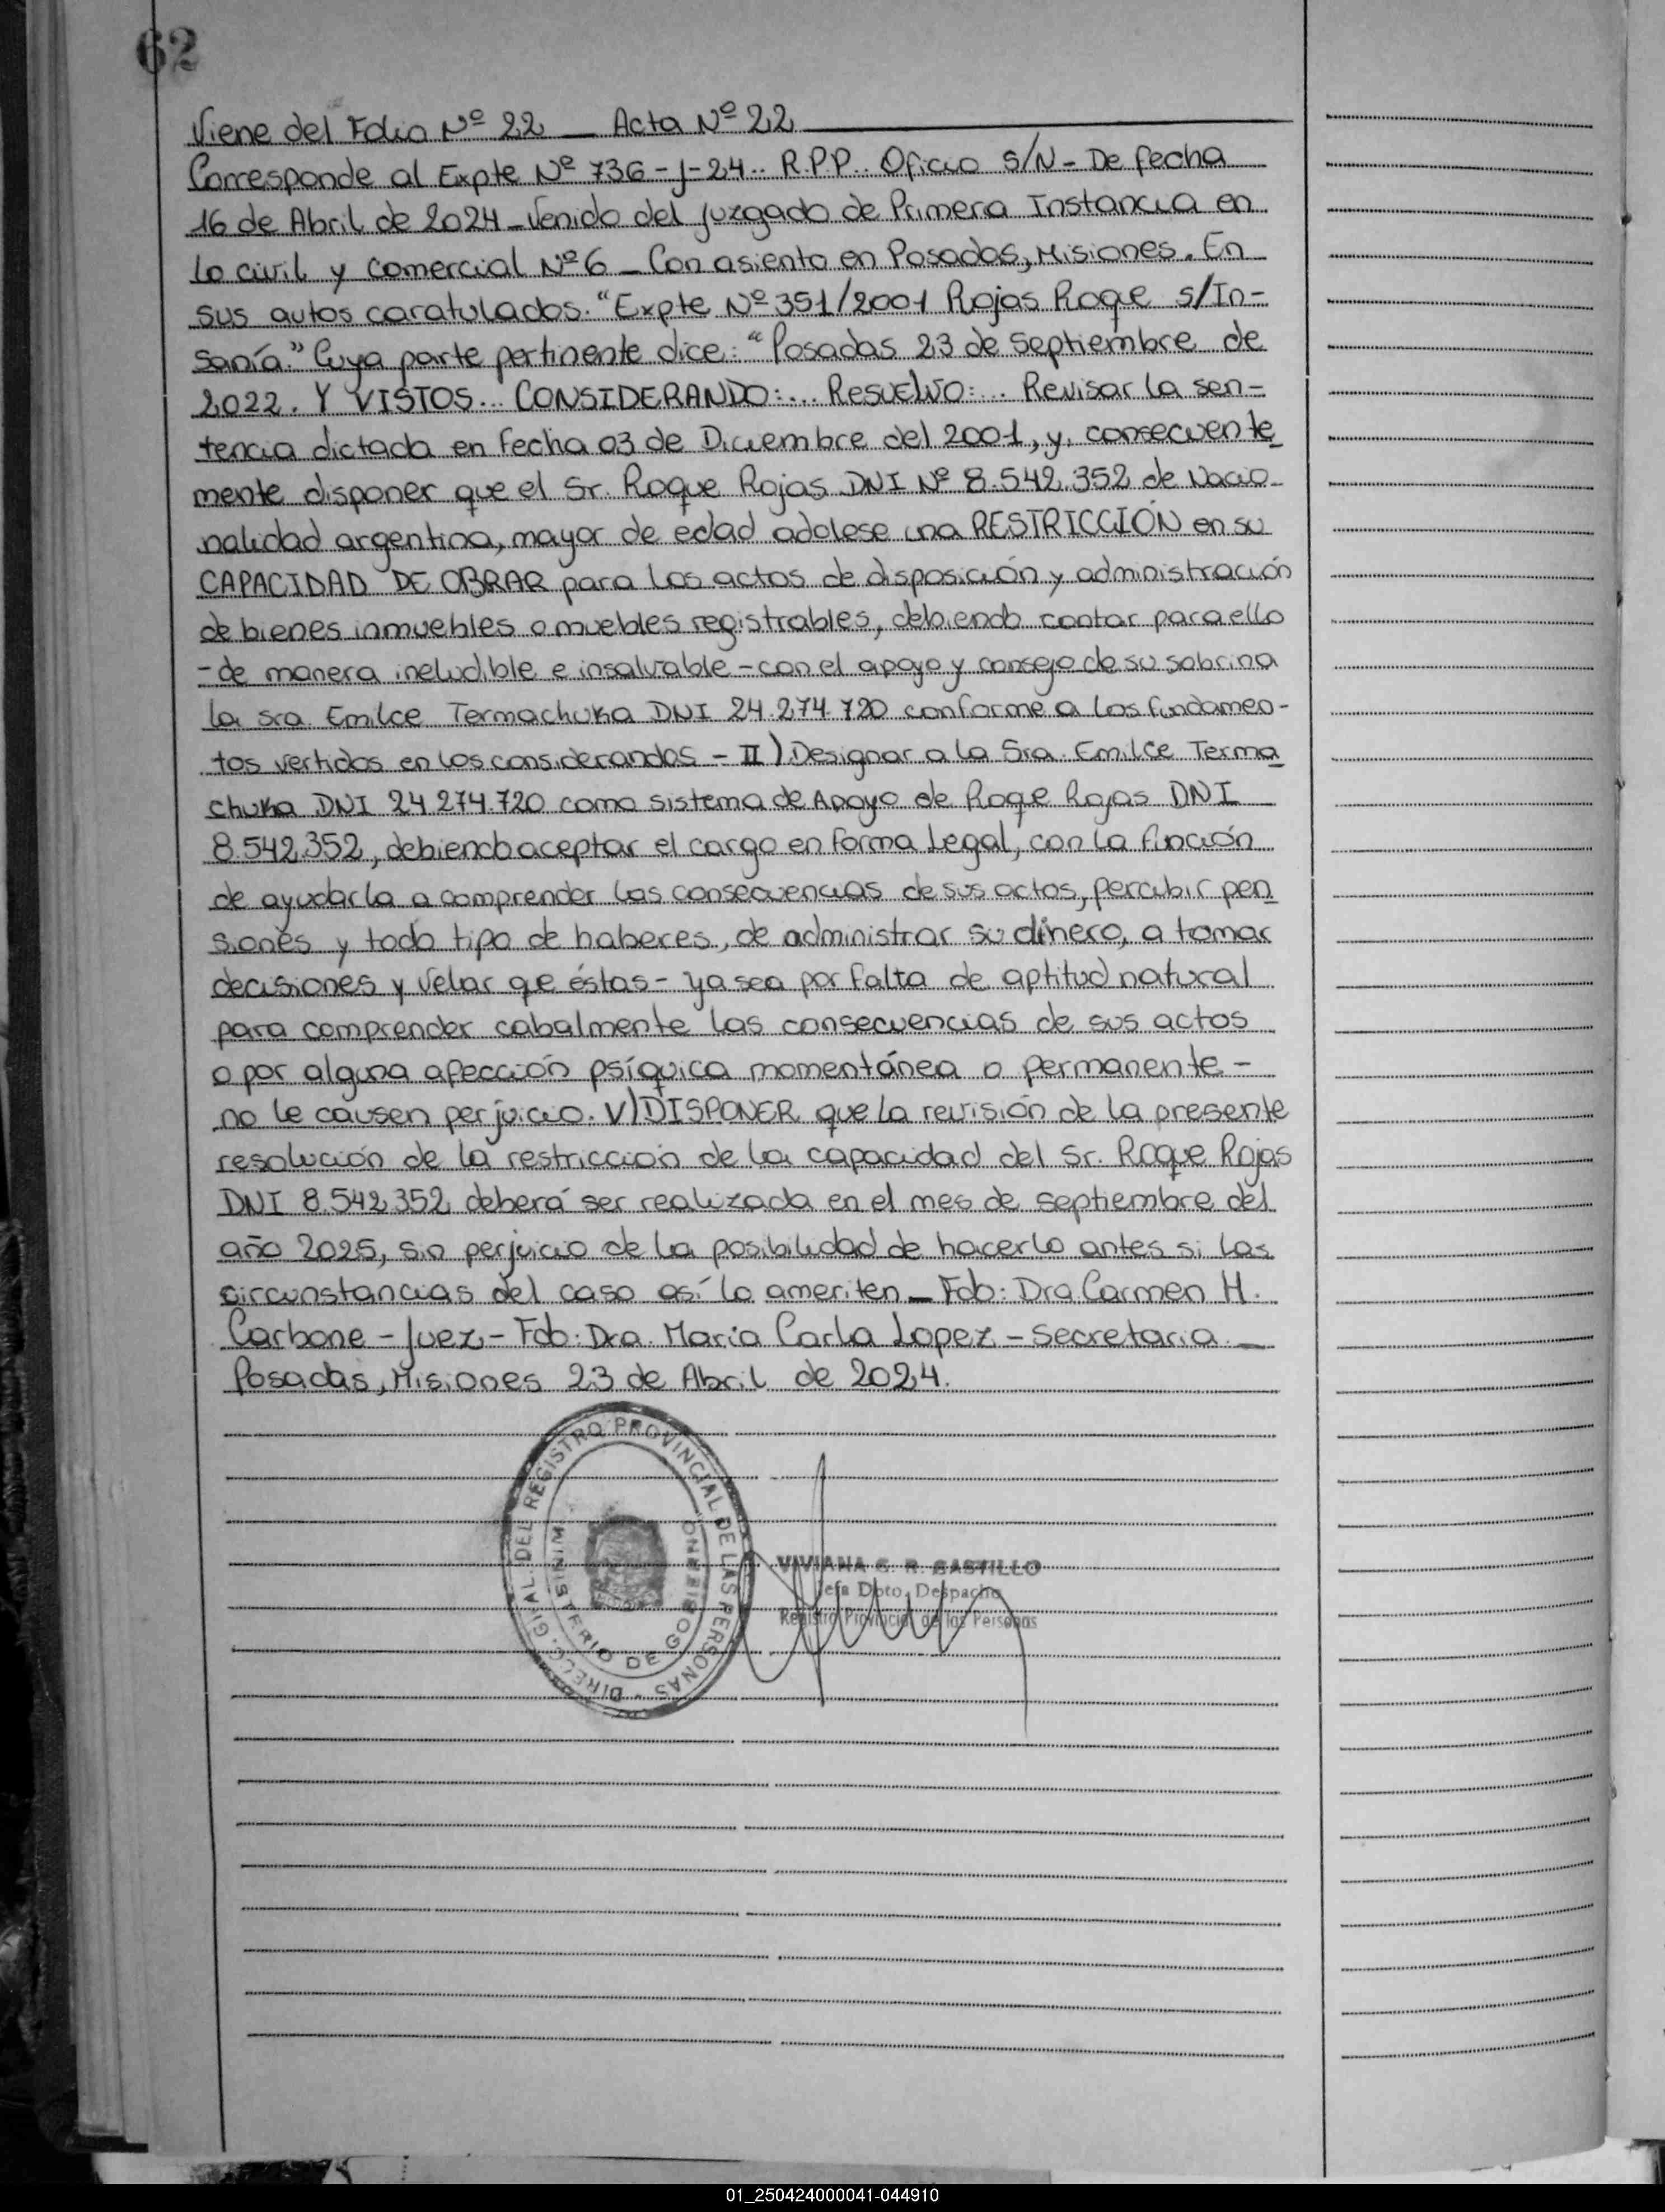 62
Viene del Folio Nº 22 _ Acta Nº 22
Corresponde al Expte Nº 736-J-24.. R.P.P.. Oficio S/N- De fecha
16 de Abril de 2024_Venido del Juzgado de Primera Instancia en
lo civil y comercial Nº 6 _ Con asiento en Posadas, Misiones. En
sus autos caratulados. "Expte Nº 351/2001 Rojas Roque s/In-
sanía." Cuya parte pertinente dice: "Posadas 23 de Septiembre de
2022. Y VISTOS... CONSIDERANDO:... RESUELVO:... Revisar la sen-
tencia dictada en fecha 03 de Diciembre del 2001, y, consecuente_
mente disponer que el Sr. Roque Rojas DNI Nº 8.542.352 de Nacio_
nalidad argentina, mayor de edad adolese una RESTRICCIÓN en su
CAPACIDAD DE OBRAR para los actos de disposición y administración
de bienes inmuebles o muebles registrables, debiendo contar para ello
-de manera ineludible e insalvable-con el apoyo y consejo de su sobrina
la sra. Emilce Termachuka DNI 24.274.720 conforme a los fundamen-
tos vertidos en los considerandos - II) Designar a la Sra. Emilce Terma_
chuka DNI 24.274.720 como sistema de Apoyo de Roqe Rojas DNI
8.542.352, debiendo aceptar el cargo en forma Legal, con la función
de ayudarla a comprender las consecuencias de sus actos, percibir pen_
siones y todo tipo de haberes, de administrar su dinero, a tomar
decisiones y velar qe éstas- ya sea por falta de aptitud natural
para comprender cabalmente las consecuencias de sus actos
o por alguna afección psíquica momentánea o permanente-
no le causen perjuicio. V) DISPONER que la revisión de la presente
resolución de la restricción de la capacidad del Sr. Roque Rojas
DNI 8.542.352 deberá ser realizada en el mes de septiembre del
año 2025, sin perjuicio de la posibilidad de hacerlo antes si las
circunstancias del caso así lo ameriten_ Fdo: Dra. Carmen H.
Carbone-Juez-Fdo: Dra. Maria Carla Lopez-Secretaria._
Posadas, Misiones 23 de Abril de 2024.
DIRECC. GRAL. DEL REGISTRO PROVINCIAL DE LAS PERSONAS
MINISTERIO DE GOBIERNO
VIVIANA G. R. CASTILLO
Jefa Dpto. Despacho
Registro Provincial de las Personas
01_250424000041-044910